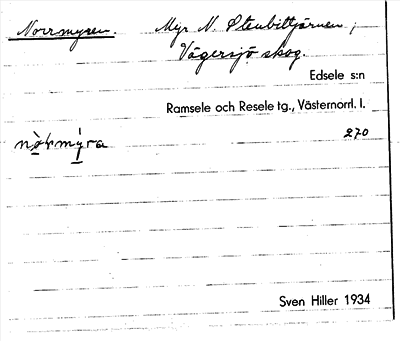 Norrmyren. Myr N. Stenbittjärnen;
Vägersjö skog.
Edsele s:n
Ramsele och Resele tg., Västernorrl. l.
270
nò̱rmy̱ra
Sven Hiller 1934